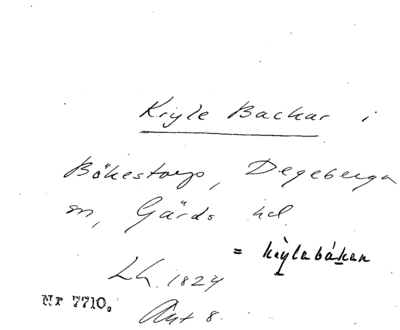 Kryle Backar i
Bökestorp, Degeberga
sn, Gärds hd
= krỳlabákan
Lh. 1824
Nr 7710. Akt 8.